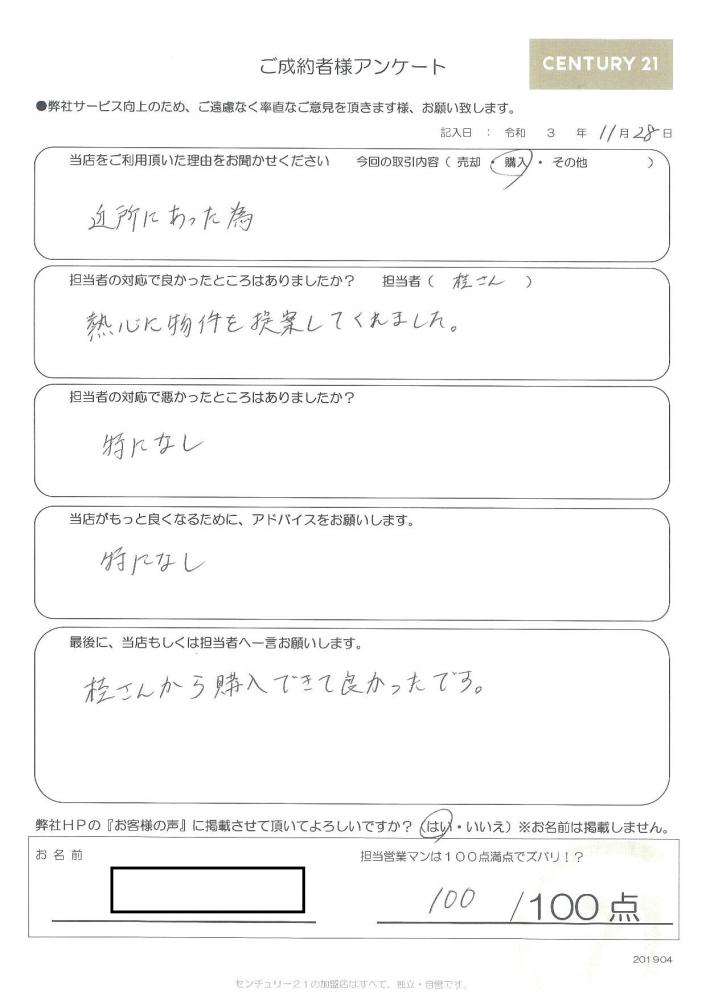 ご成約者様アンケート
CENTURY 21
●弊社サービス向上のため、ご遠慮なく率直なご意見を頂きます様、お願い致します。
記入日 : 令和 3 年 11月28日
当店をご利用頂いた理由をお聞かせください 今回の取引内容 ( 売却 ・ 購入 ・ その他 )
近所にあった為
担当者の対応で良かったところはありましたか? 担当者 ( 桂さん )
熱心に物件を提案してくれました。
担当者の対応で悪かったところはありましたか?
特になし
当店がもっと良くなるために、アドバイスをお願いします。
特になし
最後に、当店もしくは担当者へ一言お願いします。
桂さんから購入できて良かったです。
弊社HPの『お客様の声』に掲載させて頂いてよろしいですか? (はい・いいえ) ※お名前は掲載しません。
お名前
担当営業マンは100点満点でズバリ!?
100 /100点
201904
センチュリー21の加盟店はすべて、独立・自営です。